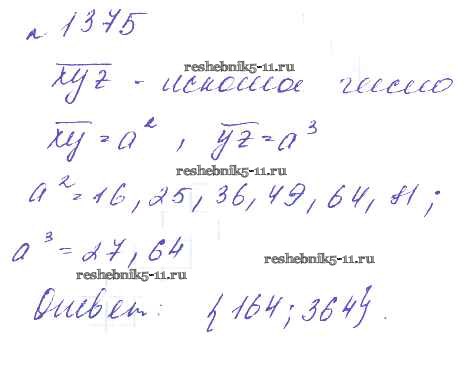 № 1375
reshebnik5-11.ru
xyz - искомое число
xy = a², yz = a³
reshebnik5-11.ru
a² = 16, 25, 36, 49, 64, 81;
a³ = 27, 64
reshebnik5-11.ru
reshebnik5-11.ru
Ответ: {164; 364}.